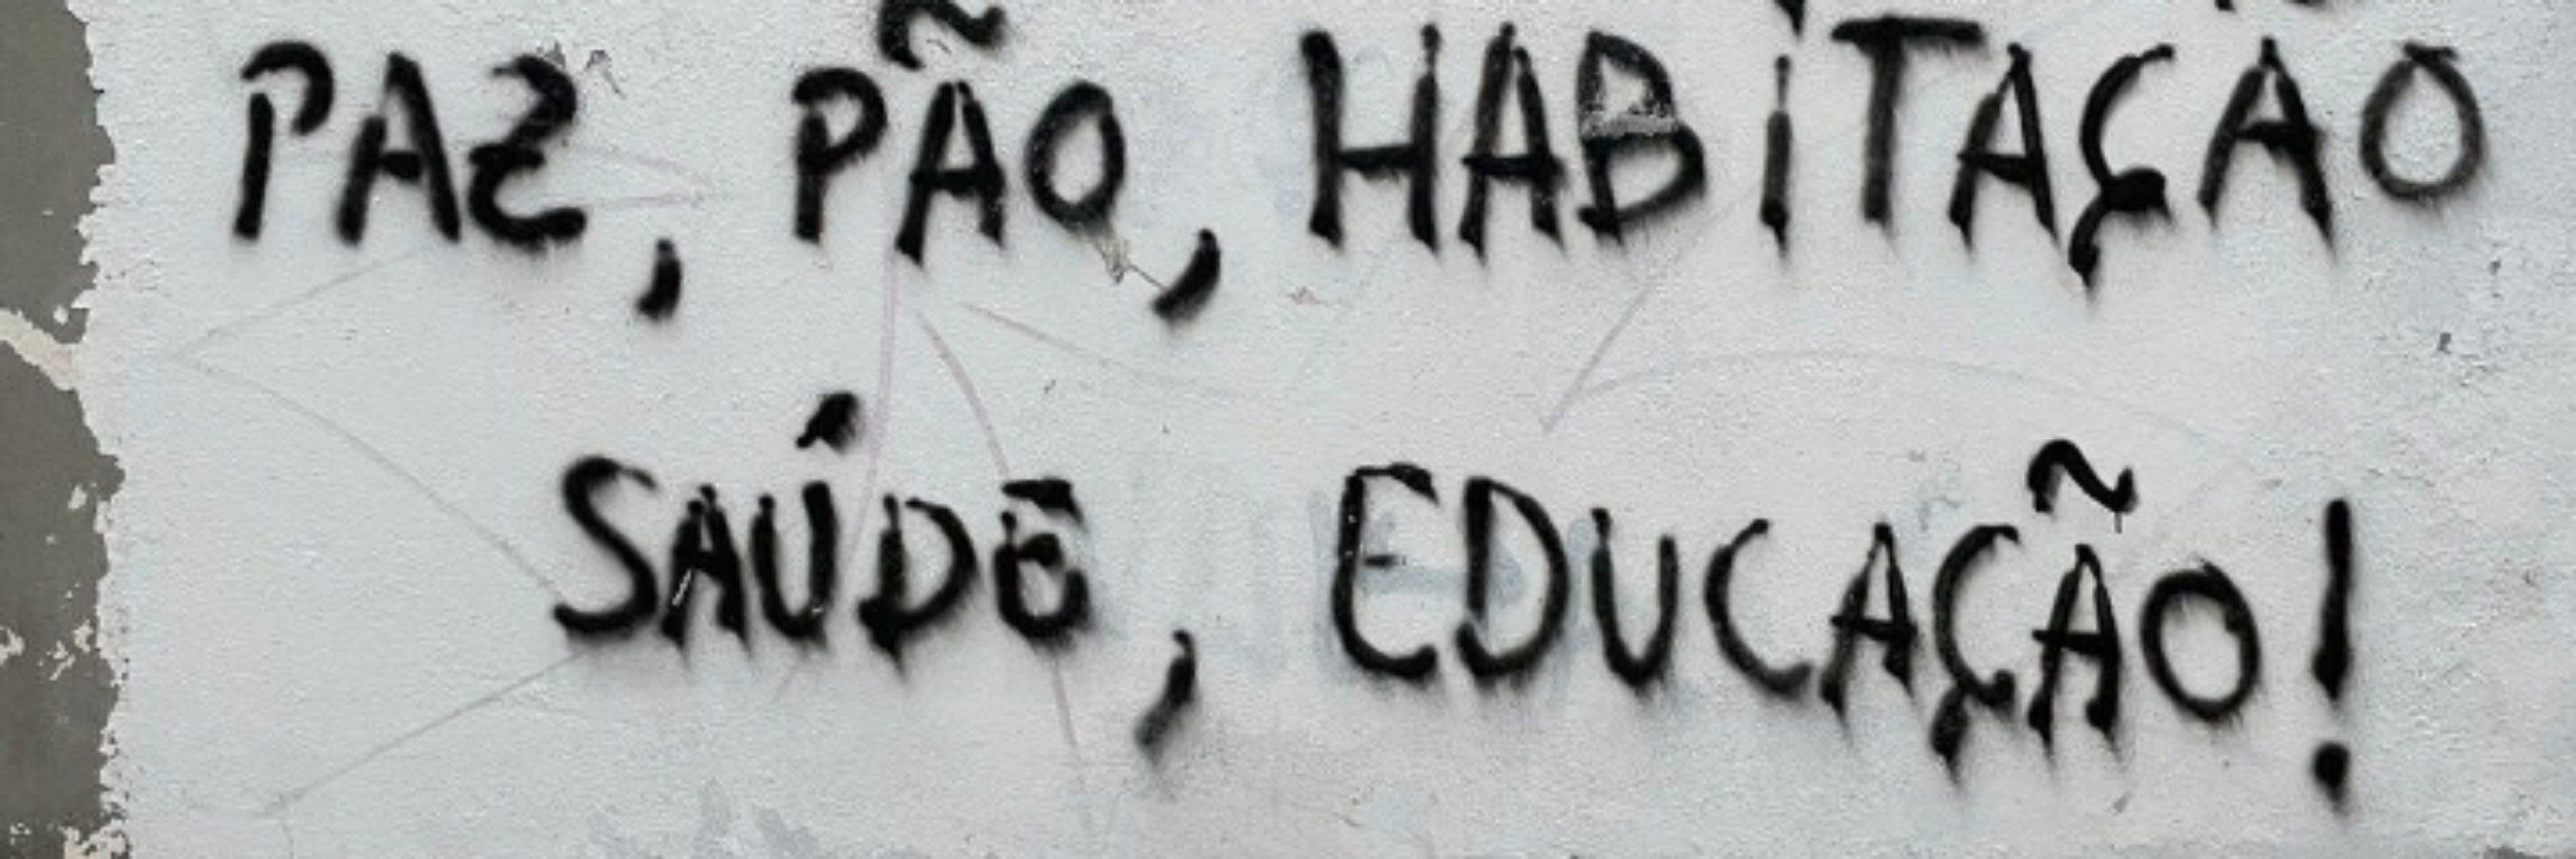 PAZ, PÃO, HABiTAÇÃO
SAÚDE, EDUCAÇÃO!